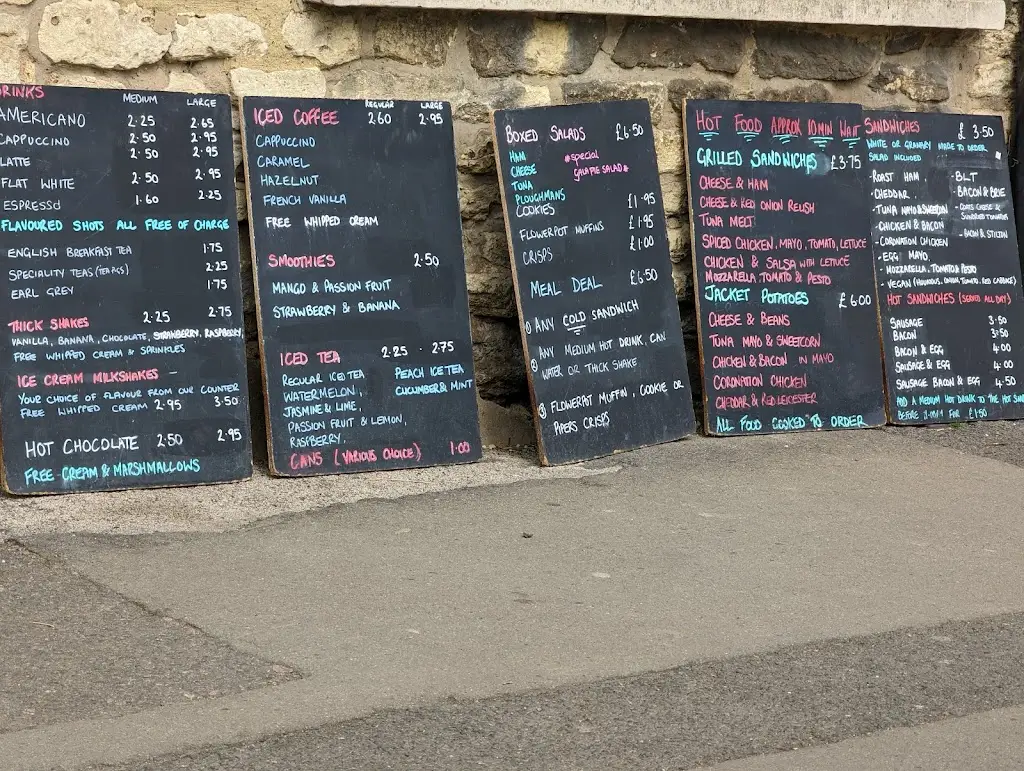 DRINKS MEDIUM LARGE
AMERICANO 2·25 2·65
CAPPUCCINO 2·50 2·95
LATTE 2·50 2·95
FLAT WHITE 2·50 2·95
ESPRESSO 1·60 2·25
FLAVOURED SHOTS ALL FREE OF CHARGE
ENGLISH BREAKFAST TEA 1·75
SPECIALITY TEAS 2·25
EARL GREY 1·75
THICK SHAKES 2·25 2·75
VANILLA, BANANA, CHOCOLATE, STRAWBERRY, RASPBERRY,
FREE WHIPPED CREAM & SPRINKLES
ICE CREAM MILKSHAKES –
YOUR CHOICE OF FLAVOUR FROM OUR COUNTER
FREE WHIPPED CREAM 2·95 3·50
HOT CHOCOLATE 2·50 2·95
FREE CREAM & MARSHMALLOWS
REGULAR LARGE
ICED COFFEE 2·60 2·95
CAPPUCCINO
CARAMEL
HAZELNUT
FRENCH VANILLA
FREE WHIPPED CREAM
SMOOTHIES 2·50
MANGO & PASSION FRUIT
STRAWBERRY & BANANA
ICED TEA 2·25 · 2·75
REGULAR ICED TEA PEACH ICE TEA
WATERMELON, CUCUMBER & MINT
JASMINE & LIME,
PASSION FRUIT & LEMON,
RASPBERRY.
CANS (VARIOUS CHOICE) 1·00
BOXED SALADS £6·50
HAM #special
CHEESE GALA PIE SALAD
TUNA
PLOUGHMANS
COOKIES £1·95
FLOWERPOT MUFFINS £1·95
CRISPS £1·00
MEAL DEAL £6·50
① ANY COLD SANDWICH
② ANY MEDIUM HOT DRINK, CAN
WATER OR THICK SHAKE
③ FLOWERPOT MUFFIN, COOKIE OR
PIPERS CRISPS
HOT FOOD APPROX 10MIN WAIT
GRILLED SANDWICHES £3·75
CHEESE & HAM
CHEESE & RED ONION RELISH
TUNA MELT
SPICED CHICKEN, MAYO, TOMATO, LETTUCE
CHICKEN & SALSA WITH LETTUCE
MOZZARELLA TOMATO & PESTO
JACKET POTATOES £6·00
CHEESE & BEANS
TUNA MAYO & SWEETCORN
CHICKEN & BACON IN MAYO
CORONATION CHICKEN
CHEDDAR & RED LEICESTER
ALL FOOD COOKED TO ORDER
SANDWICHES £3·50
WHITE OR GRANARY MADE TO ORDER
SALAD INCLUDED
- ROAST HAM - BLT
- CHEDDAR - BACON & BRIE
- TUNA MAYO & SWEETCORN
- CHICKEN & BACON - BACON & STILTON
- CORONATION CHICKEN
- EGG MAYO
- MOZZARELLA, TOMATO & PESTO
- VEGAN
HOT SANDWICHES (SERVED ALL DAY)
SAUSAGE 3·50
BACON 3·50
BACON & EGG 4·00
SAUSAGE & EGG 4·00
SAUSAGE BACON & EGG 4·50
ADD A MEDIUM HOT DRINK TO THE HOT
BEFORE FOR £1·50